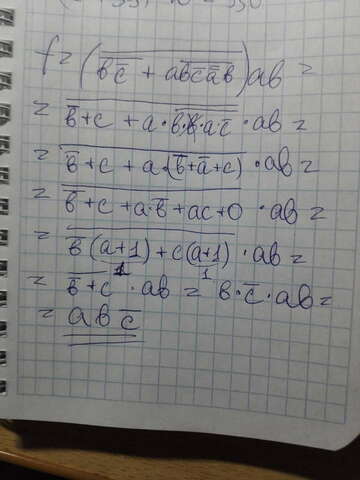 f = (\overline{\overline{b\overline{c}} + a\overline{b\overline{c}\overline{a}b}})ab =
= \overline{\overline{b}+c + a·\overline{b·b·a\overline{c}}} · ab =
= \overline{\overline{b}+c + a·(\overline{b}+\overline{a}+c)} · ab =
= \overline{\overline{b}+c + a·\overline{b} + ac + 0} · ab =
= \overline{\overline{b}(a+1) + c(a+1)} · ab =
1 1
= \overline{\overline{b}+c} · ab = b·\overline{c}·ab =
= ab\overline{c}